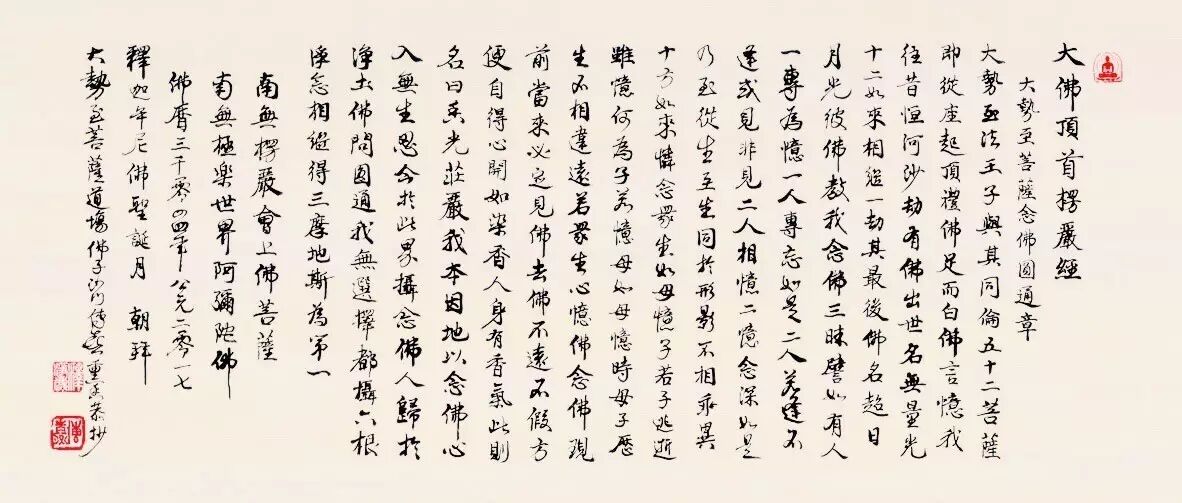 大佛頂首楞嚴經
大勢至菩薩念佛圓通章
大勢至法王子與其同倫五十二菩薩
即從座起頂禮佛足而白佛言憶我
往昔恒河沙劫有佛出世名無量光
十二如來相繼一劫其最後佛名超日
月光彼佛教我念佛三昧譬如有人
一專為憶一人專忘如是二人若逢不
逢或見非見二人相憶二憶念深如是
乃至從生至生同於形影不相乖異
十方如來憐念眾生如母憶子若子逃逝
雖憶何為子若憶母如母憶時母子歷
生不相違遠若眾生心憶佛念佛現
前當來必定見佛去佛不遠不假方
便自得心開如染香人身有香氣此則
名曰香光莊嚴我本因地以念佛心
入無生忍今於此界攝念佛人歸於
淨土佛問圓通我無選擇都攝六根
淨念相繼得三摩地斯為第一
南無楞嚴會上佛菩薩
南無極楽世界阿彌陀佛
佛曆三千零四四年 公元二零一七
釋迦牟尼佛聖誕月 朝拜
大勢至菩薩道場佛子沙門傳喜重恭抄